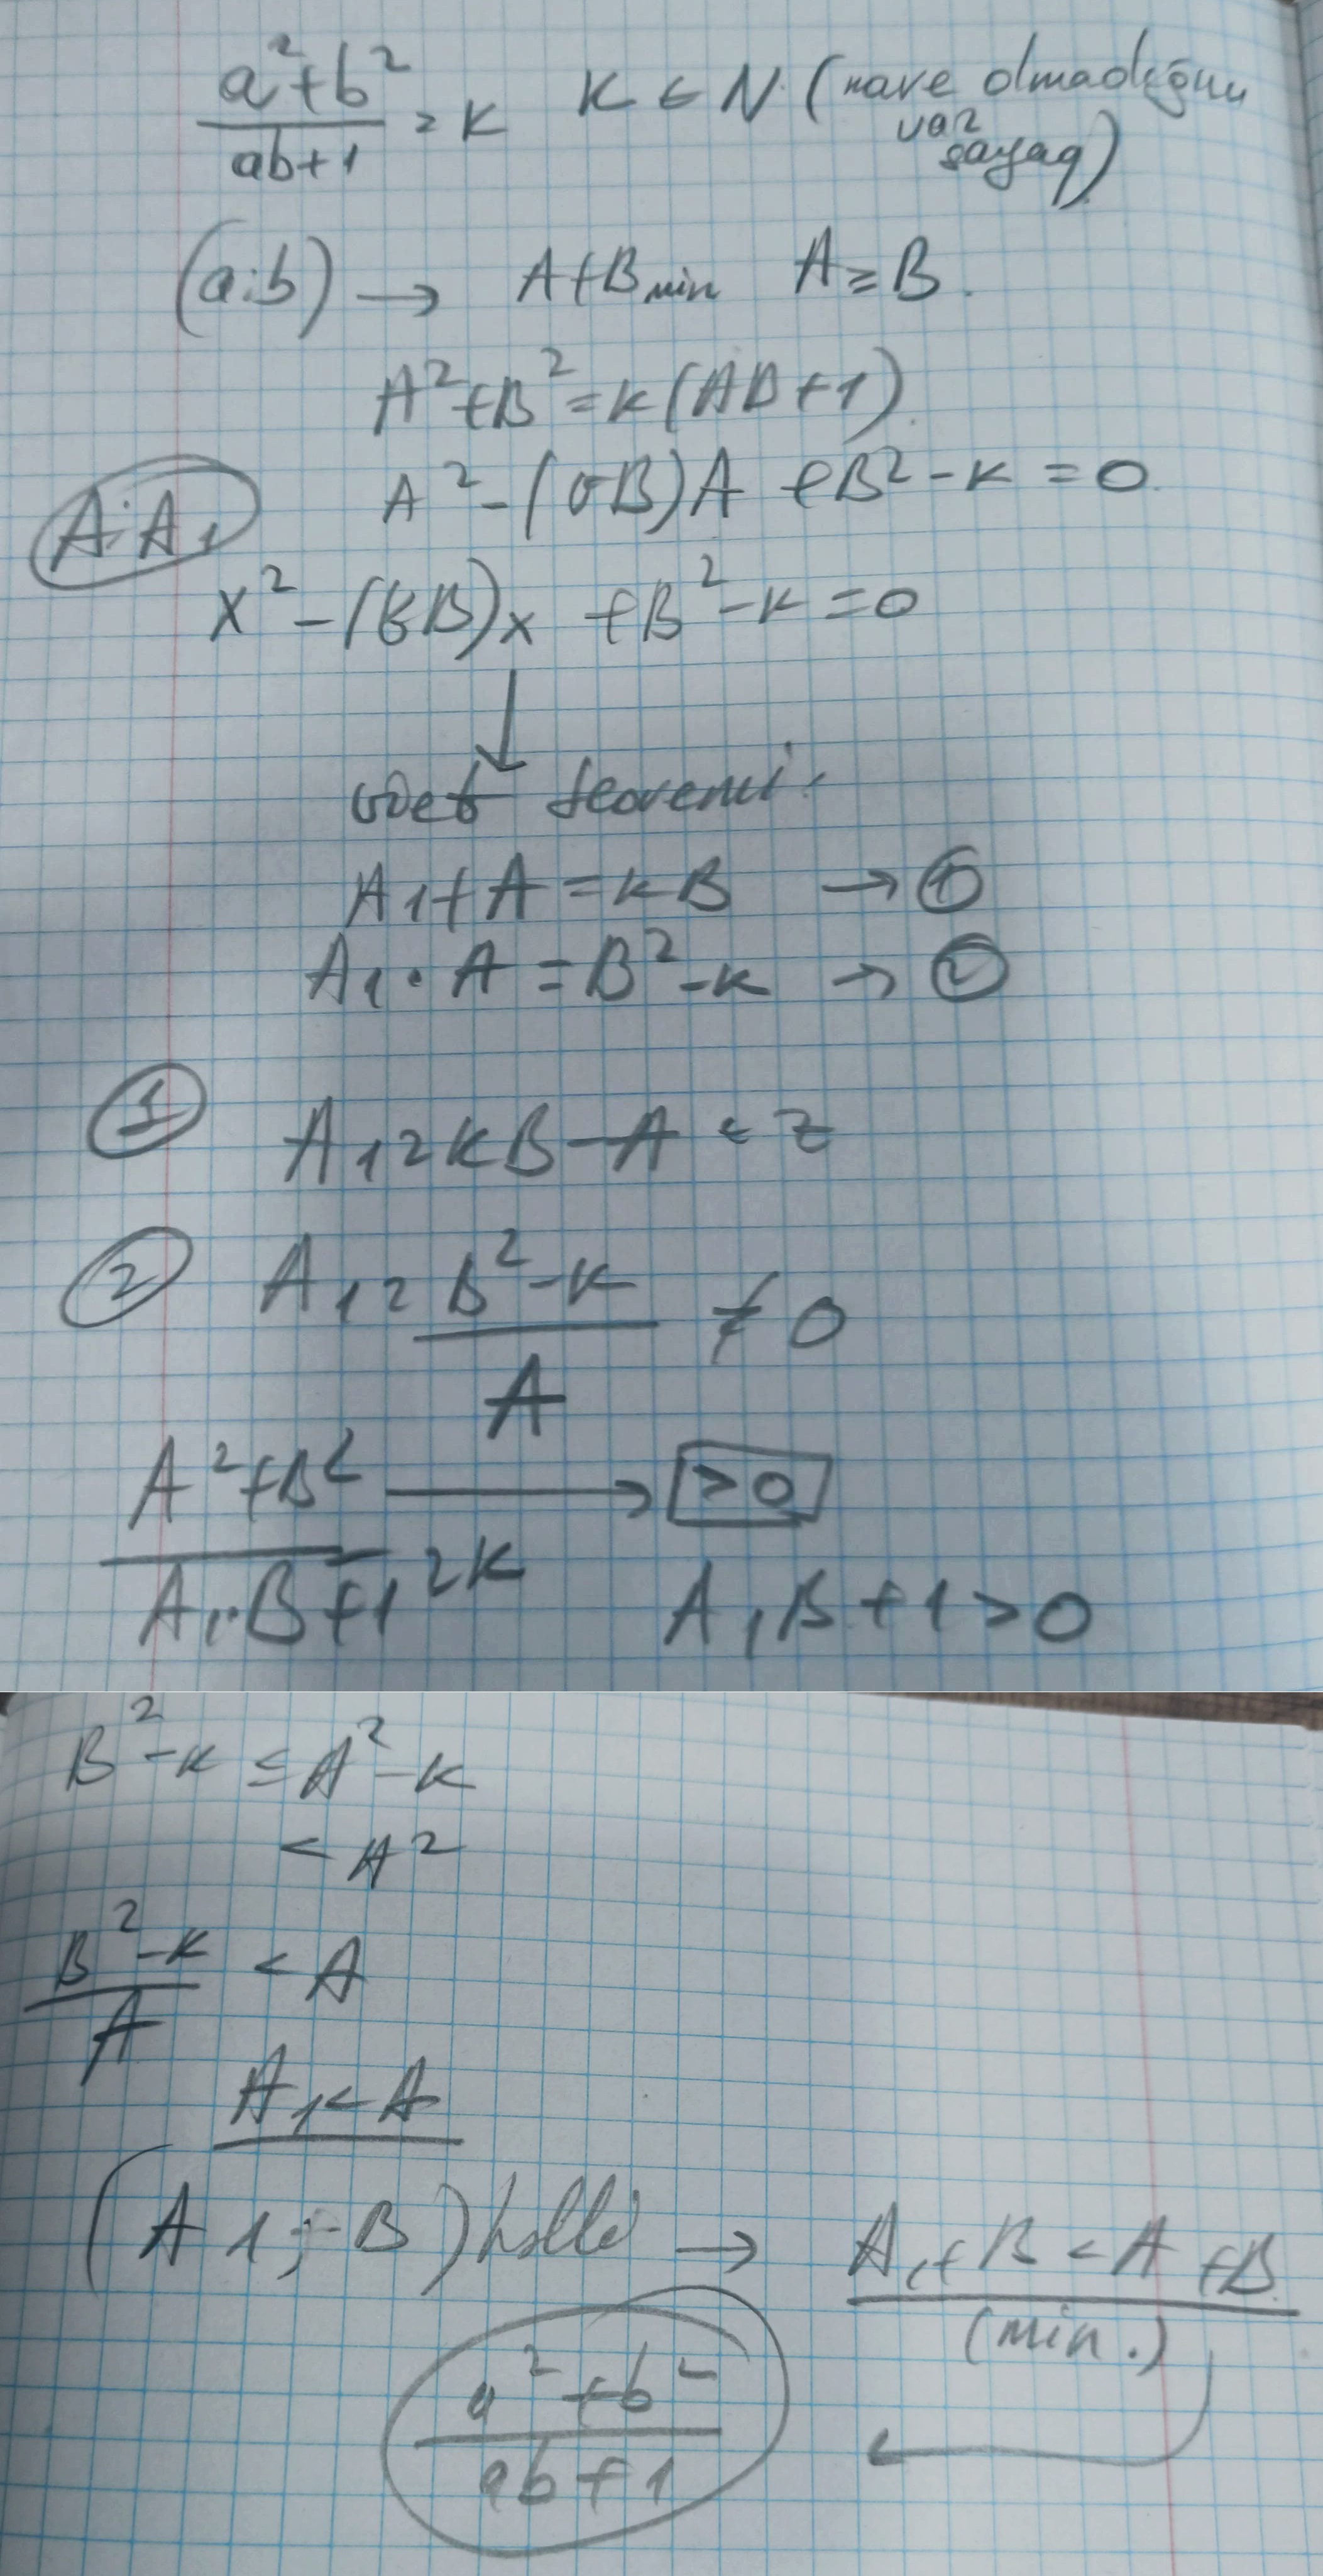 a²+b² / ab+1 = k   K ∈ N (kare olmadığını
var
sayaq)
(a;b) → A+B min   A ≥ B.
A²+B² = k(AB+1).
A² - (kB)A + B² - k = 0.
A; A₁
x² - (kB)x + B² - k = 0
viet teoremi:
A₁ + A = kB → ①
A₁ · A = B² - k → ②
① A₁ = kB - A ∈ Z
② A₁ = B² - k / A ≠ 0
A²+B² / A₁·B+1 = k → >0
A₁B + 1 > 0
B² - k ≤ A² - k
< A²
B² - k / A < A
A₁ < A
(A₁; B) → A₁ + B < A + B
(min.)
a² + b² / ab + 1